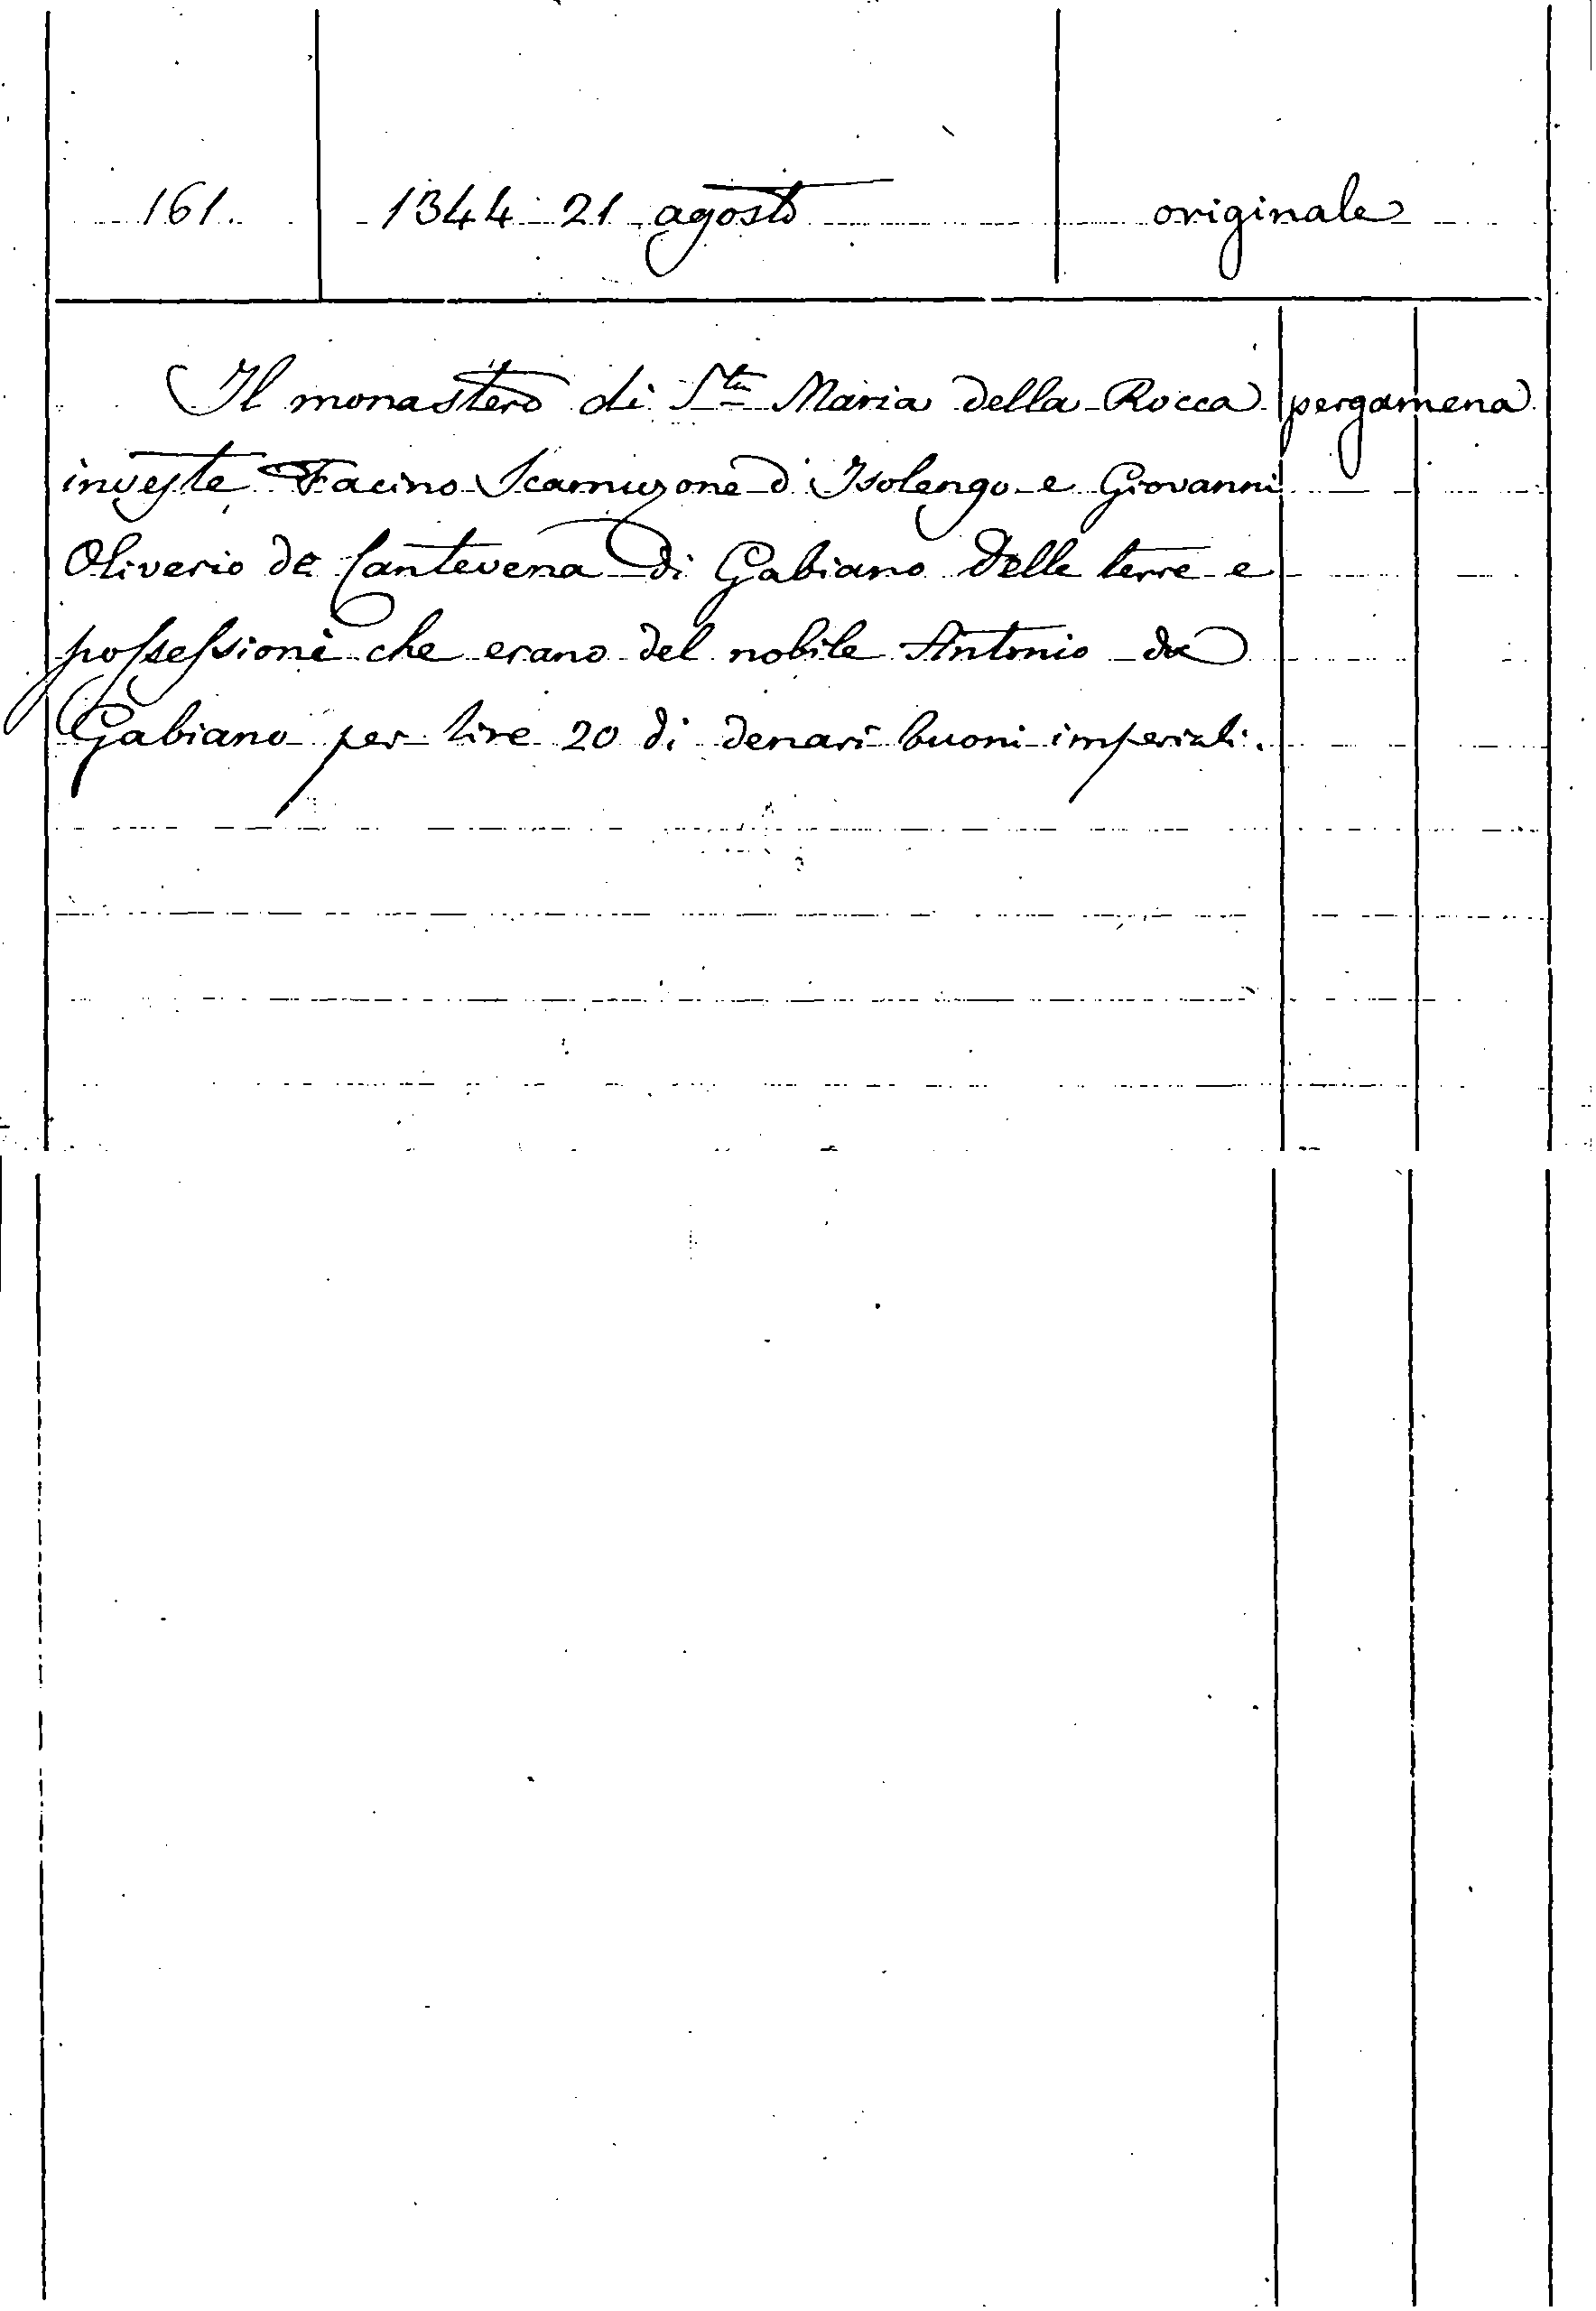 161. 1344 21 agosto originale
Il monastero di S.ta Maria della Rocca pergamena
investe Facino Scamuzone d'Isolengo e Giovanni
Oliverio de Cantevena di Gabiano delle terre e
possessioni che erano del nobile Antonio da
Gabiano per lire 20 di denari buoni imperiali.